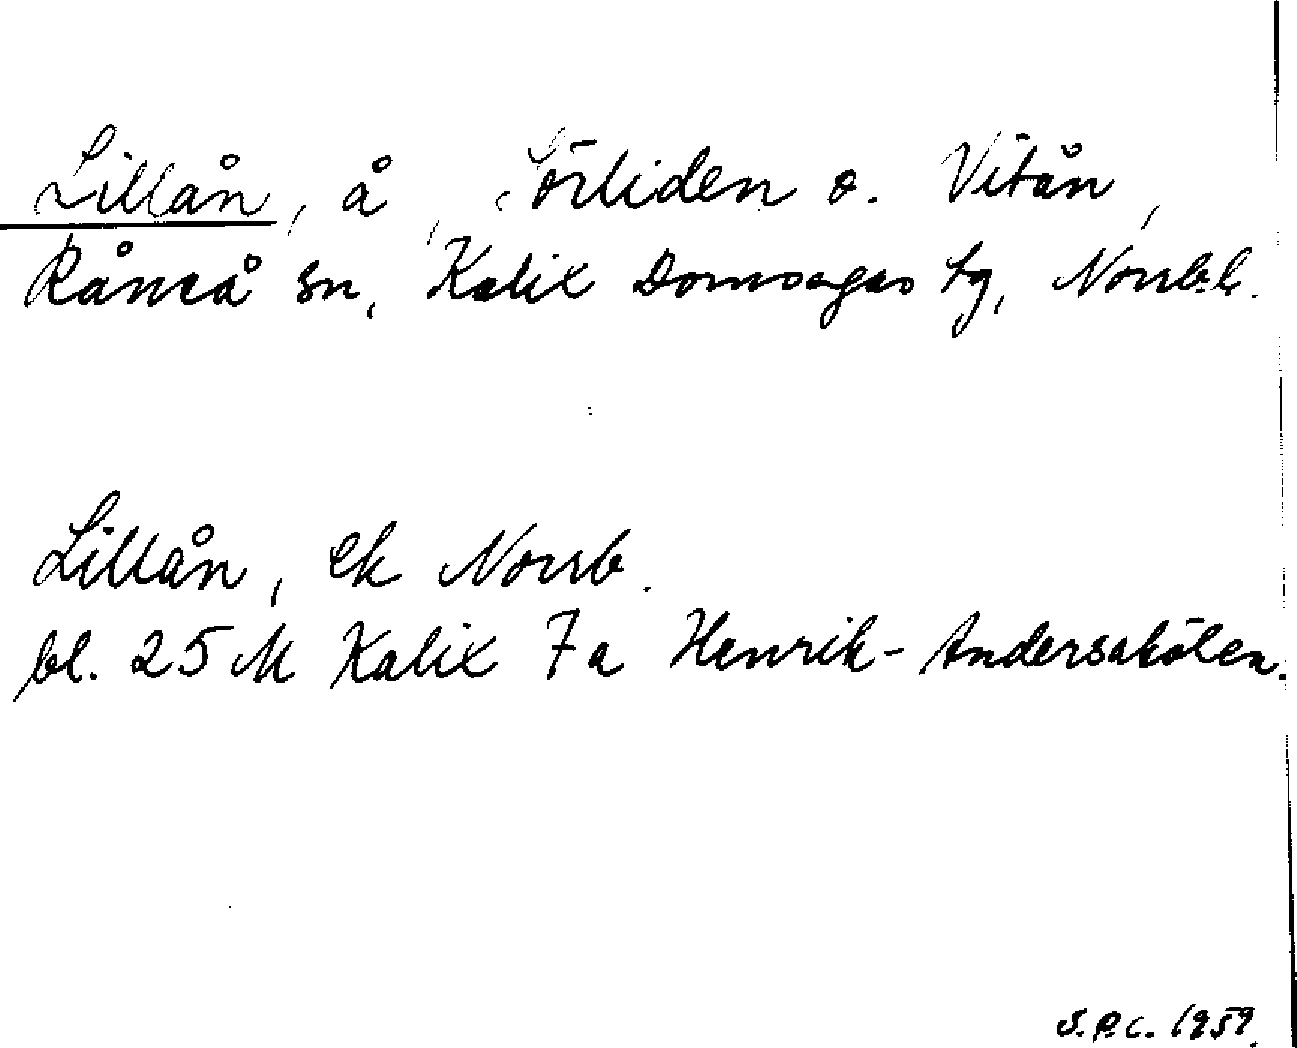 Lillån, å, Sörliden o. Vitån,
Råneå sn, Kalix Domsagas tg, Norrb.l.
Lillån, ek Norrb.
bl. 25 M Kalix 7 a Henrik-Andersakölen.
S.P.C. 1959.